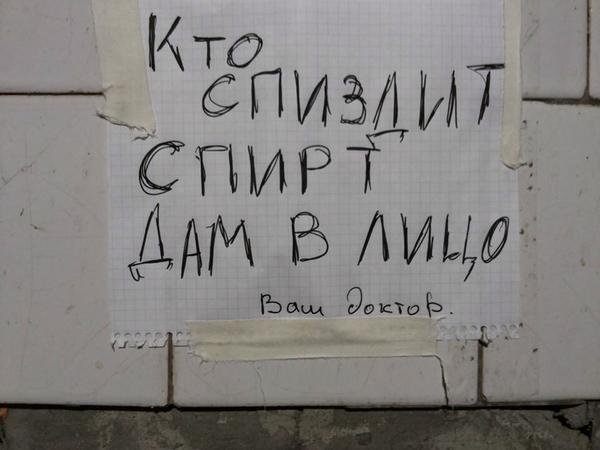 Кто
СПИЗДИТ
СПИРТ
ДАМ В ЛИЦО
Ваш доктор.